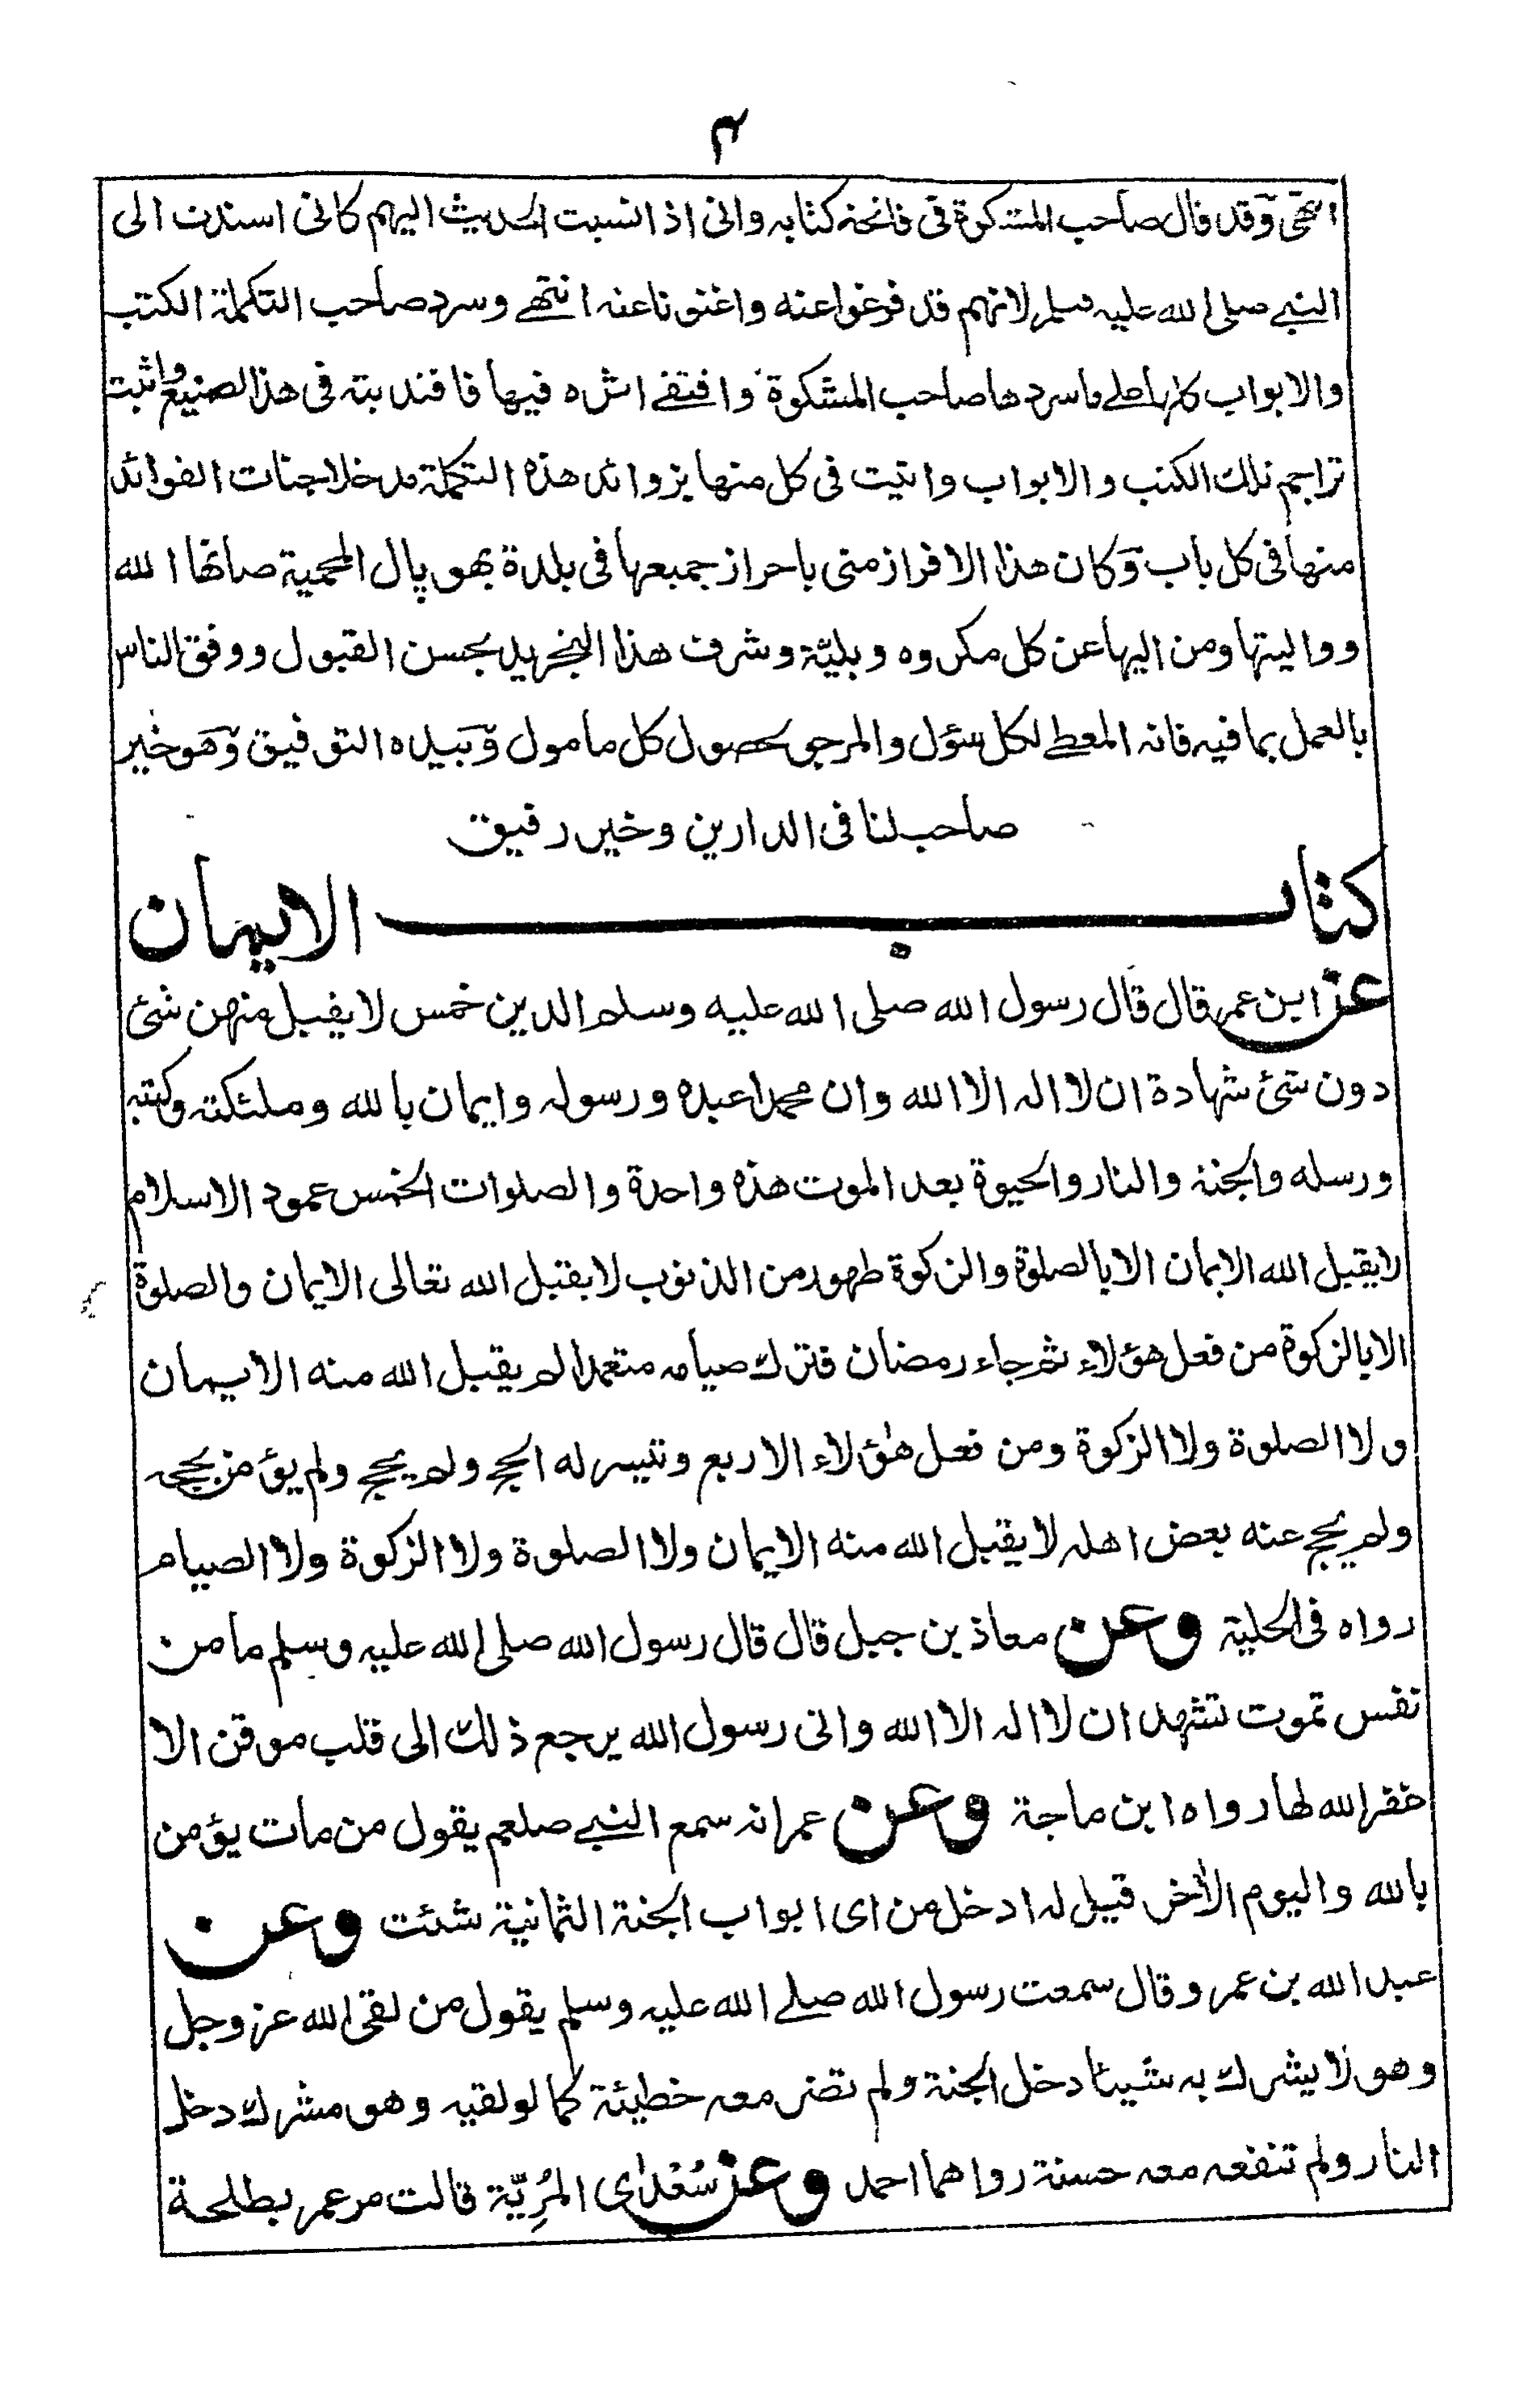 ۴
انتهى وقد قال صاحب المشكوة فى فاتحة كتابه وانى اذا نسبت الحديث اليهم كانى اسندت الى
النبى صلى الله عليه وسلم لانهم قد فرغوا عنه واغنونا عنه انتهى وسرد صاحب التكملة الكتب
والابواب كلها على ما سردها صاحب المشكوة واقتفى اثره فيها فاقتديت به فى هذا الصنيع واثبت
تراجم تلك الكتب والابواب واتيت فى كل منها بزوائد هذه التكملة مدخلا جنات الفوائد
منها فى كل باب وكان هذا الافراز منى باحراز جميعها فى بلدة بهوپال المحمية صانها الله
وواليتها ومن اليها عن كل مكروه وبلية وشرف هذا التجريد بحسن القبول ووفق الناس
بالعمل بما فيه فانه المعطى لكل سؤل والمرجو لحصول كل مامول وبيده التوفيق وهو خير
صاحب لنا فى الدارين وخير رفيق
كتاب الايمان
عن ابن عمر قال قال رسول الله صلى الله عليه وسلم الدين خمس لا يقبل منهن شئ
دون شئ شهادة ان لا اله الا الله وان محمدا عبده ورسوله وايمان بالله وملئكته وكتبه
ورسله والجنة والنار والحيوة بعد الموت هذه واحدة والصلوات الخمس عمود الاسلام
لا يقبل الله الايمان الا بالصلوة والزكوة طهور من الذنوب لا يقبل الله تعالى الايمان والصلوة
الا بالزكوة من فعل هؤلاء ثم جاء رمضان فترك صيامه متعمدا لم يقبل الله منه الايمان
ولا الصلوة ولا الزكوة ومن فعل هؤلاء الاربع وتيسر له الحج ولم يحج ولم يؤمن بحجه
ولم يحج عنه بعض اهله لا يقبل الله منه الايمان ولا الصلوة ولا الزكوة ولا الصيام
رواه فى الحلية وعن معاذ بن جبل قال قال رسول الله صلى الله عليه وسلم ما من
نفس تموت تشهد ان لا اله الا الله وانى رسول الله يرجع ذلك الى قلب موقن الا
غفر الله لها رواه ابن ماجة وعن عمر انه سمع النبى صلعم يقول من مات يؤمن
بالله واليوم الاخر قيل له ادخل من اى ابواب الجنة الثمانية شئت وعن
عبد الله بن عمرو قال سمعت رسول الله صلے الله عليه وسلم يقول من لقى الله عز وجل
وهو لا يشرك به شيئا دخل الجنة ولم تضر معه خطيئة كما لو لقيه وهو مشرك دخل
النار ولم تنفعه معه حسنة رواهما احمد وعن سُعْدٰى المُرِيّة قالت مر عمر بطلحة